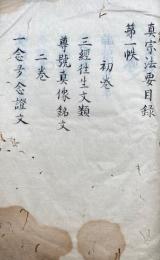 真宗法要目録
第一帙
初卷
三經往生文類
尊號真像銘文
二卷
一念多念證文